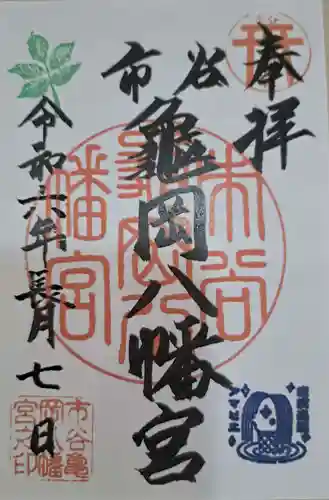 奉拝
市谷
龜岡八幡宮
令和六年長月七日
市谷
八幡宮
市谷亀
岡八幡
宮之印